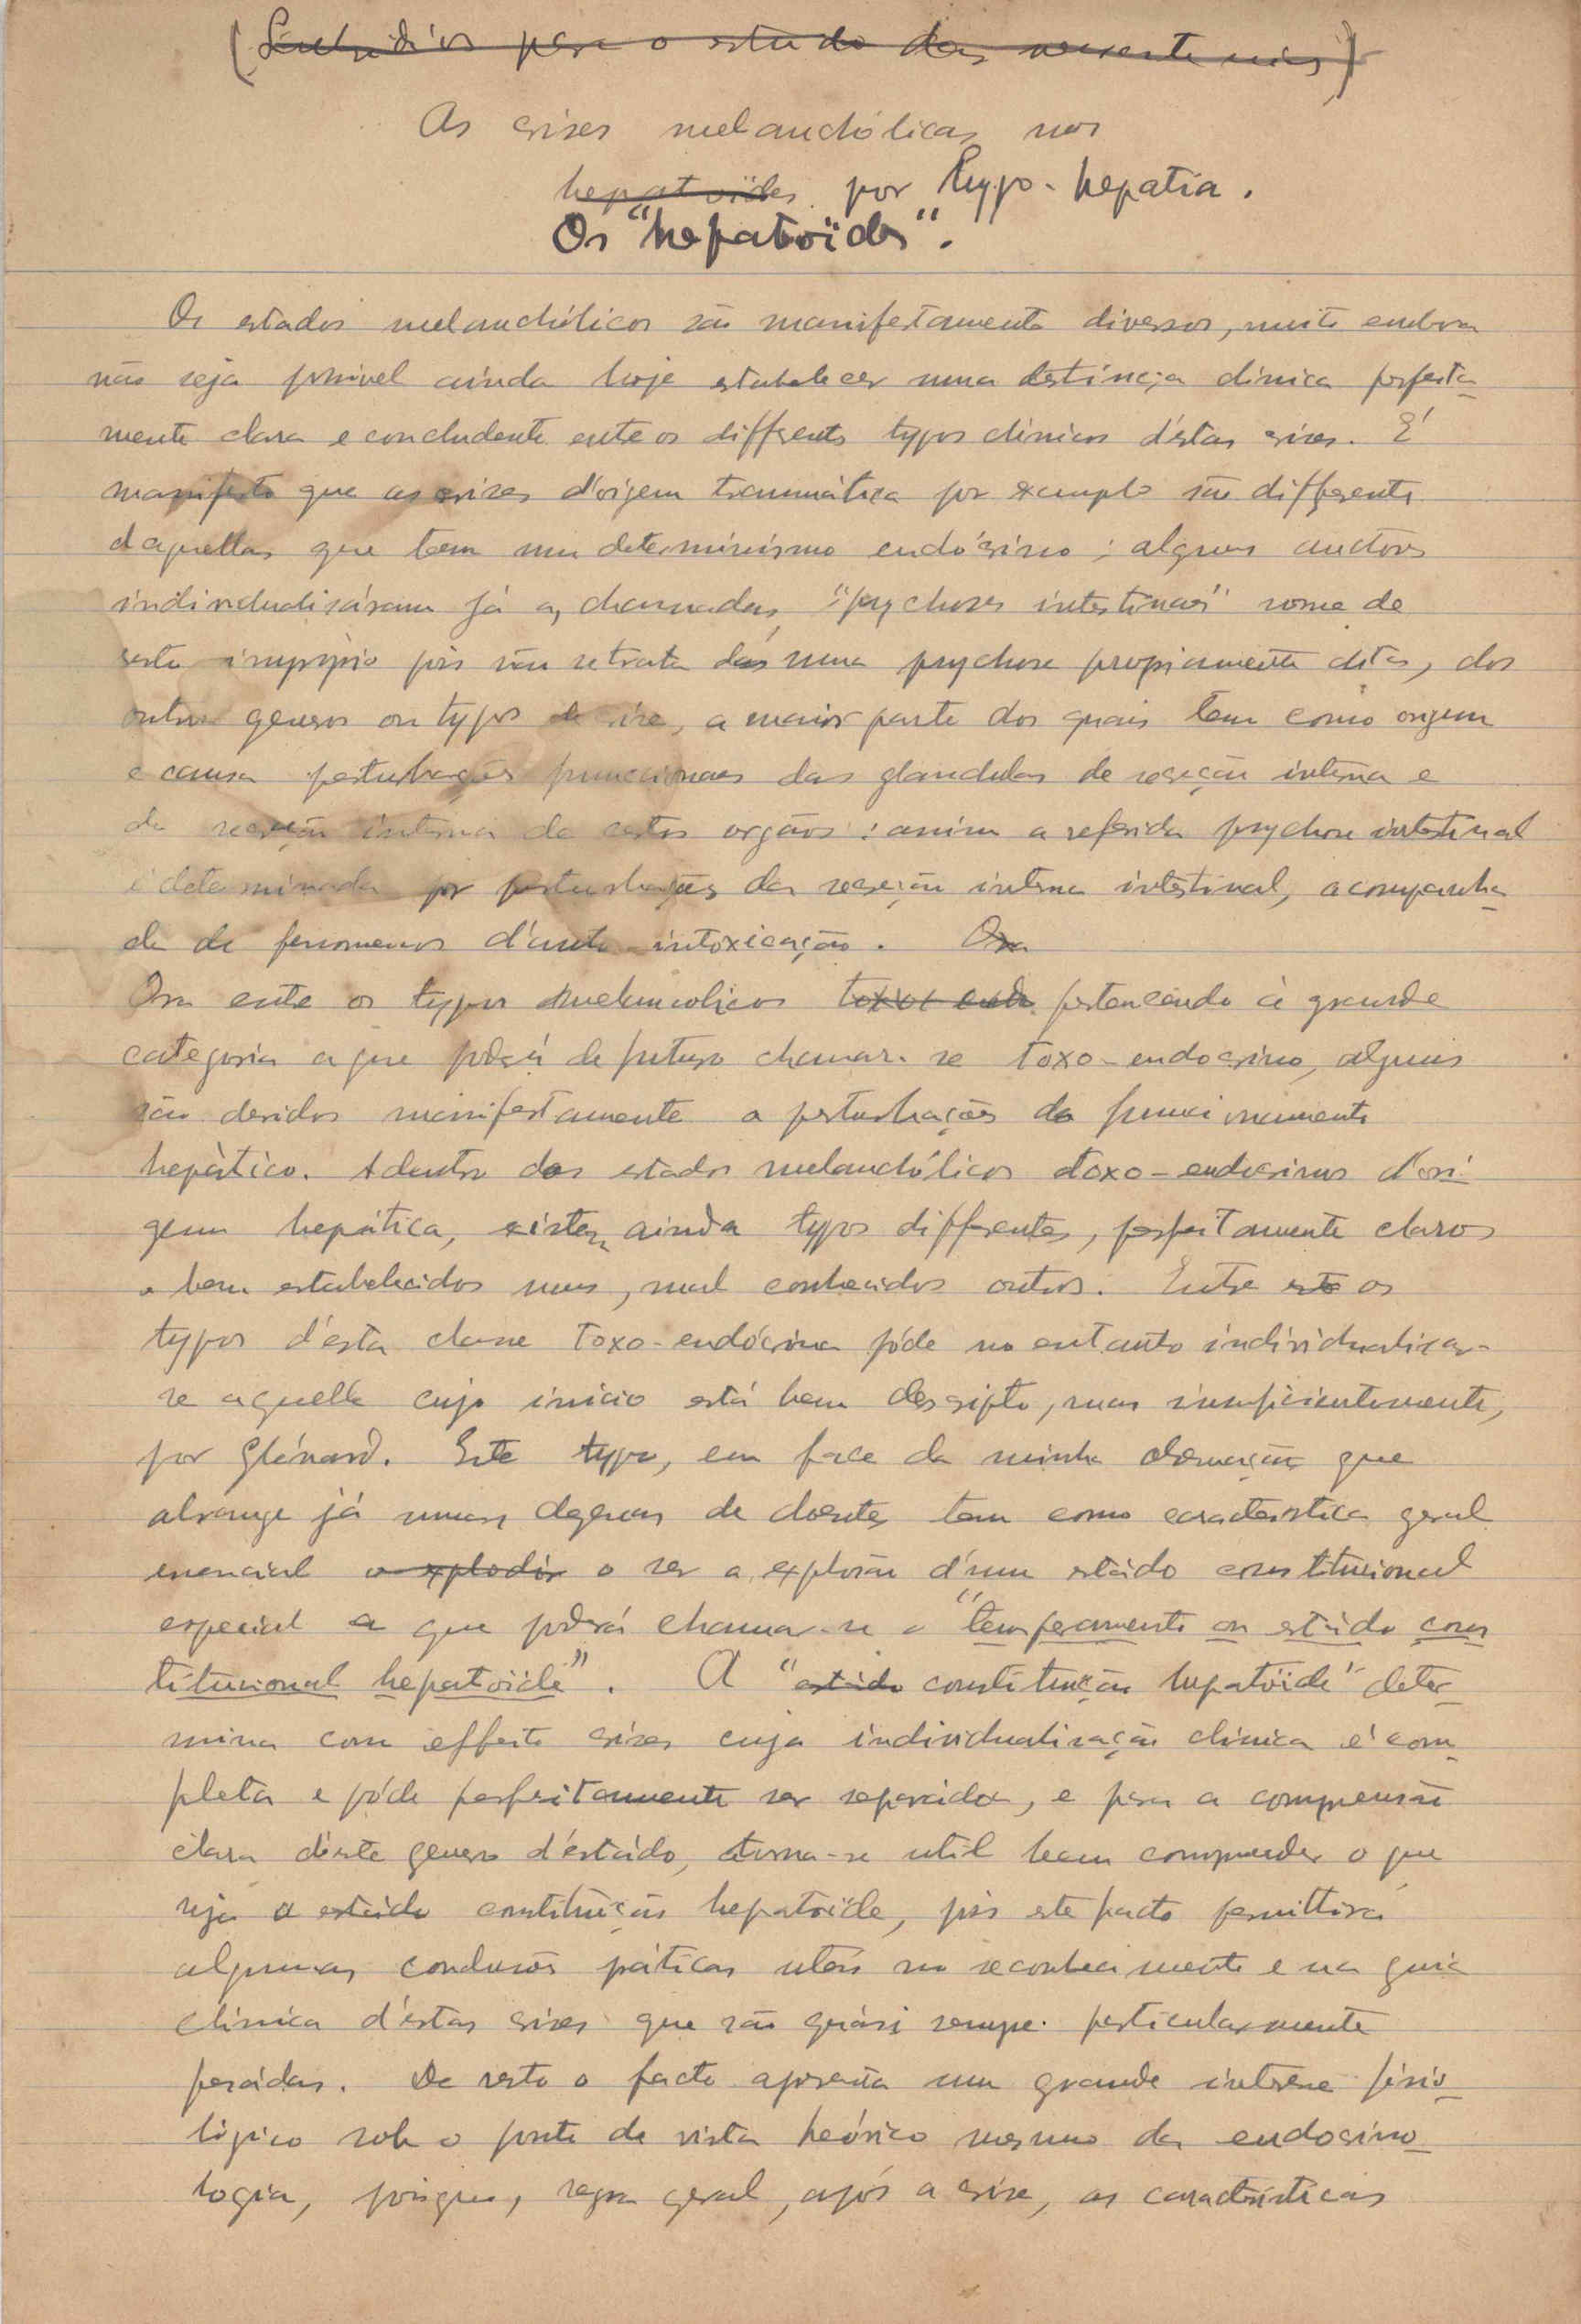 (Subsidios para o estudo das neurastenias)
As crises melanchólicas nos
hepatoïdes por hypo-hepatia.
Os "hepatoïdes".
Os estados melanchólicos são manifestamente diversos, muito embora
não seja possivel ainda hoje estabelecer uma distincção clinica perfeita-
mente clara e concludente entre os differentes typos clinicos d'estas crises. É
manifesto que as crises d'origem traumática por exemplo são differentes
daquellas que teem um determinismo endócrino; alguns auctores
individualisáram já as chamadas "psychoses intestinaes" nome de
resto impróprio pois não se trata duma psychose propriamente dita, dos
outros generos ou typos de crise, a maior parte dos quais tem como origem
e causa perturbações funccionaes das glandulas de secreção interna e
da secreção interna de certos orgãos: assim a referida psychose intestinal
é determinada por perturbações da secreção interna intestinal, acompanha-
da de fenomenos d'auto-intoxicação. Ora
Ora entre os typos melancolicos toxo-end pertencendo à grande
categoria a que poderá de futuro chamar-se toxo-endocrino, alguns
são devidos manifestamente a perturbações do funccionamento
hepático. Adentro dos estados melanchólicos toxo-endocrinos d'ori-
gem hepática, existem ainda typos differentes, perfeitamente claros
e bem estabelecidos uns, mal conhecidos outros. Entre este os
typos d'esta classe toxo-endócrina póde no entanto individualizar-
se aquelle cujo inicio está bem descripto, mas insuficientemente,
por Glénard. Este typo, em face da minha observação que
abrange já umas dezenas de doentes tem como caracteristica geral
essencial o explodir o ser a explosão d'um estado constitucional
especial a que poderá chamar-se o "temperamento ou estado cons
titucional hepatoïde". A "estado constituição hepatoïde" deter-
mina com effeito crises cuja individualisação clinica é com-
pleta e póde perfeitamente ser separada, e para a compreensão
clara d'este genero d'estado, torna-se util bem comprender o que
seja a estado constituição hepatoïde, pois este facto permittirá
algumas conclusões práticas uteis no reconhecimento e na guia
clinica d'estas crises que são quási sempre particularmente
pesadas. De resto o facto apresenta um grande interesse fisio-
lógico sob o ponto de vista teórico mesmo da endocrino-
logia, porque, regra geral, após a crise, as caracteristicas